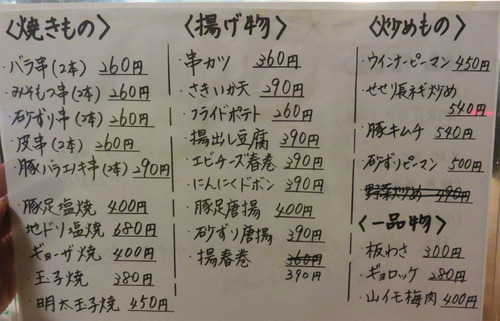 〈焼きもの〉
・バラ串(2本) 260円
・みそもつ串(2本) 260円
・砂ずり串(2本) 260円
・皮串(2本) 260円
・豚バラエノキ串(2本) 290円
・豚足塩焼 400円
・地ドリ塩焼 680円
・ギョーザ焼 400円
・玉子焼 380円
・明太玉子焼 450円
〈揚げ物〉
・串カツ 360円
・さきいか天 290円
・フライドポテト 260円
・揚出し豆腐 390円
・エビチーズ春巻 390円
・にんにくドボン 390円
・豚足唐揚 400円
・砂ずり唐揚 390円
・揚春巻 360円
390円
〈炒めもの〉
・ウインナーピーマン 450円
・せせり長ネギ炒め
540円
・豚キムチ 540円
・砂ずりピーマン 500円
・野菜炒め 490円
〈一品物〉
・板わさ 300円
・ギョロッケ 280円
・山イモ梅肉 400円